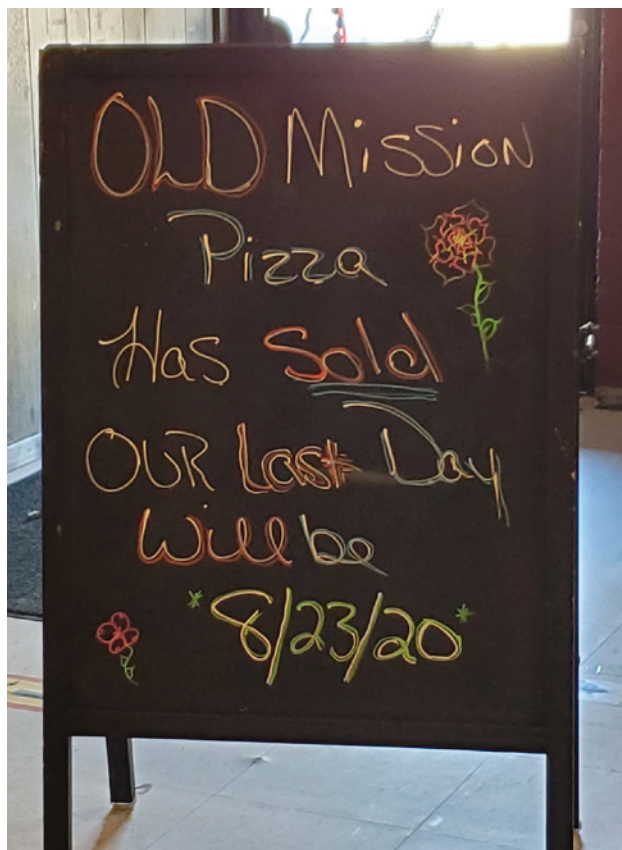 OLD Mission
Pizza
Has Sold
OUR Last Day
Will be
*8/23/20*